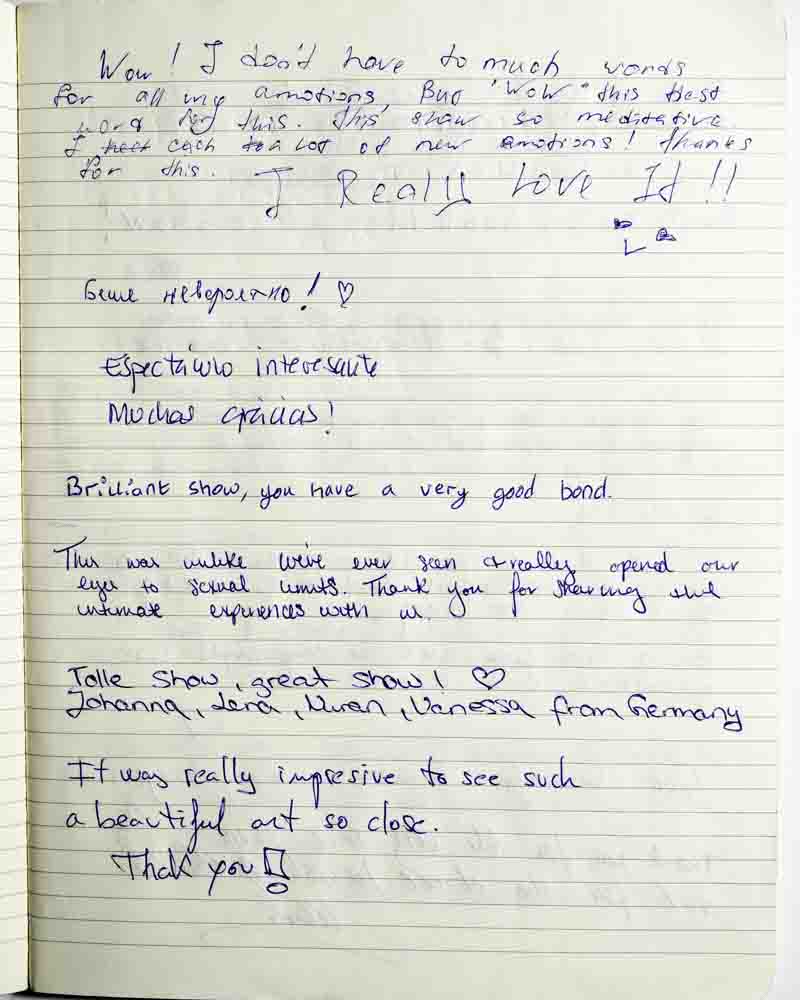 Wow! I don't have to much words
for all my amotions, But "WoW" this best
word for this. This show so meditative.
I catch a lot of new emotions! thanks
for this.
I Really Love It!!
Беше невероятно! ♡
Espectáculo interesante
Muchas grácias!
Brilliant show, you have a very good bond.
This was unlike we've ever seen & really opened our
eyes to sexual limits. Thank you for sharing
intimate experiences with us.
Tolle Show, great show! ♡
Johanna, Lena, Vanessa from Germany
It was really impresive to see such
a beautiful art so close.
Thak you!